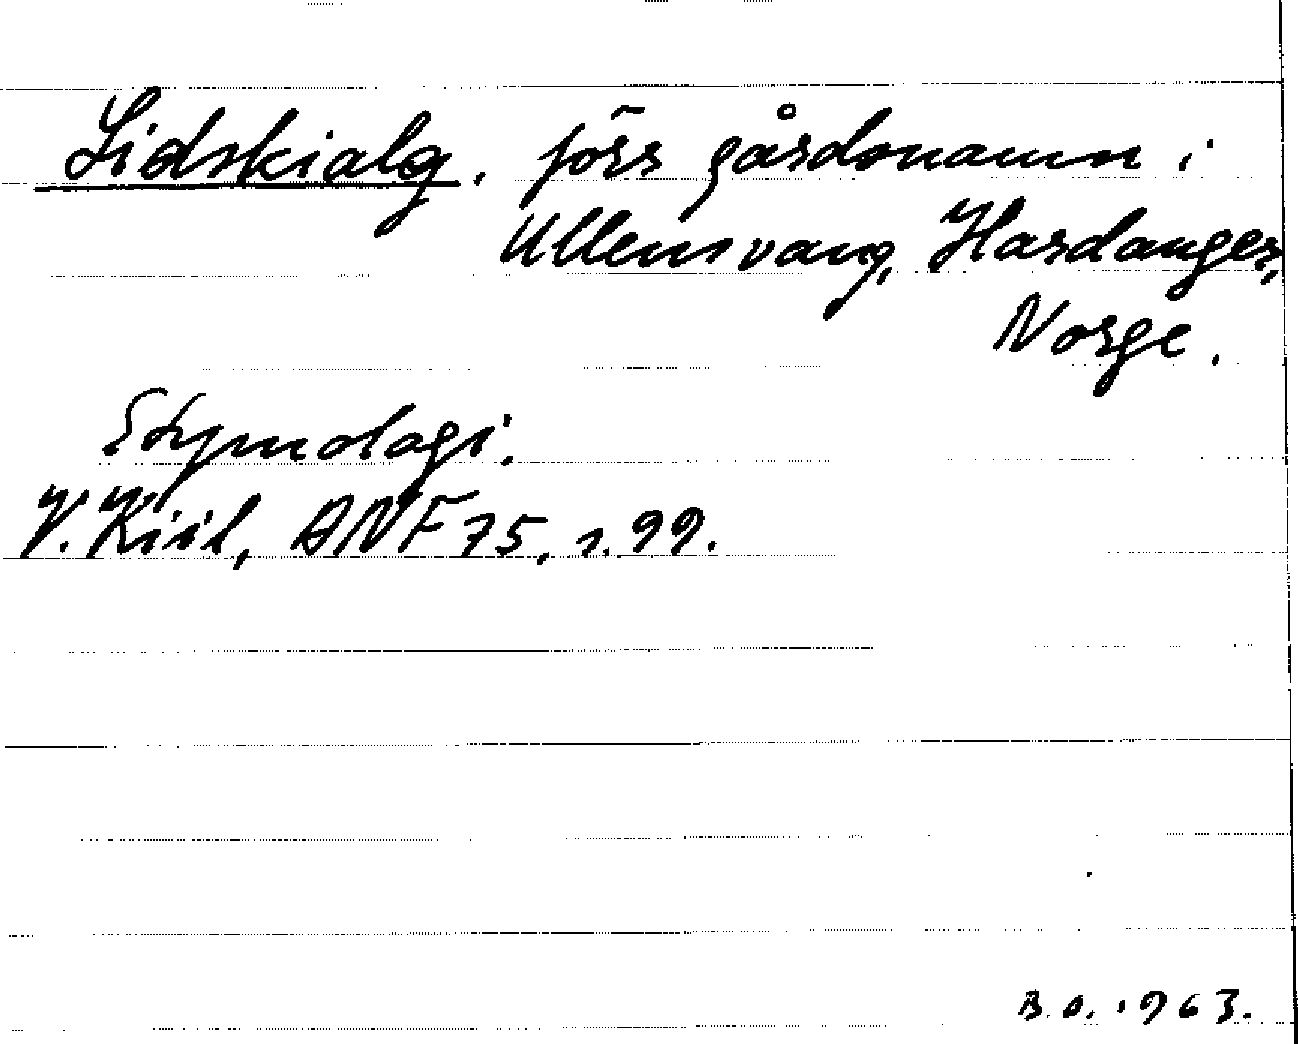 Lidskialg, förr gårdsnamn i
Ullensvang, Hardanger,
Norge.
Etymologi.
V. Kiil, ANF 75, s. 99.
B.O. 1963.